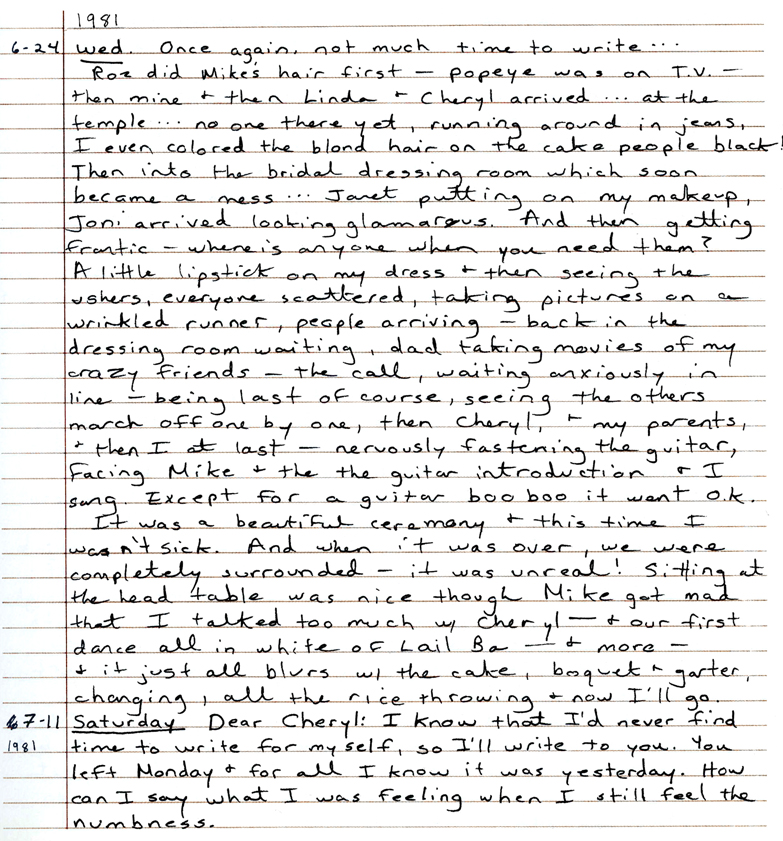 1981
6-24 Wed. Once again, not much time to write ...
Roz did Mike's hair first - Popeye was on T.V. -
then mine + then Linda + Cheryl arrived ... at the
temple ... no one there yet, running around in jeans,
I even colored the blond hair on the cake people black!
Then into the bridal dressing room which soon
became a mess ... Janet putting on my makeup,
Joni arrived looking glamarous. And then getting
frantic - where is anyone when you need them?
A little lipstick on my dress + then seeing the
ushers, everyone scattered, taking pictures on a
wrinkled runner, people arriving - back in the
dressing room waiting, dad taking movies of my
crazy friends - the call, waiting anxiously in
line - being last of course, seeing the others
march off one by one, then Cheryl, + my parents,
+ then I at last - nervously fastening the guitar,
facing Mike + the the guitar introduction + I
sang. Except for a guitar boo boo it went o.k.
It was a beautiful ceremony + this time I
wasn't sick. And when it was over, we were
completely surrounded - it was unreal! Sitting at
the head table was nice though Mike got mad
that I talked too much w/ Cheryl - + our first
dance all in white of Lail Ba - + more -
+ it just all blurs w/ the cake, boquet + garter,
changing, all the rice throwing + now I'll go.
7-11 Saturday Dear Cheryl: I know that I'd never find
1981 time to write for myself, so I'll write to you. You
left Monday + for all I know it was yesterday. How
can I say what I was feeling when I still feel the
numbness.